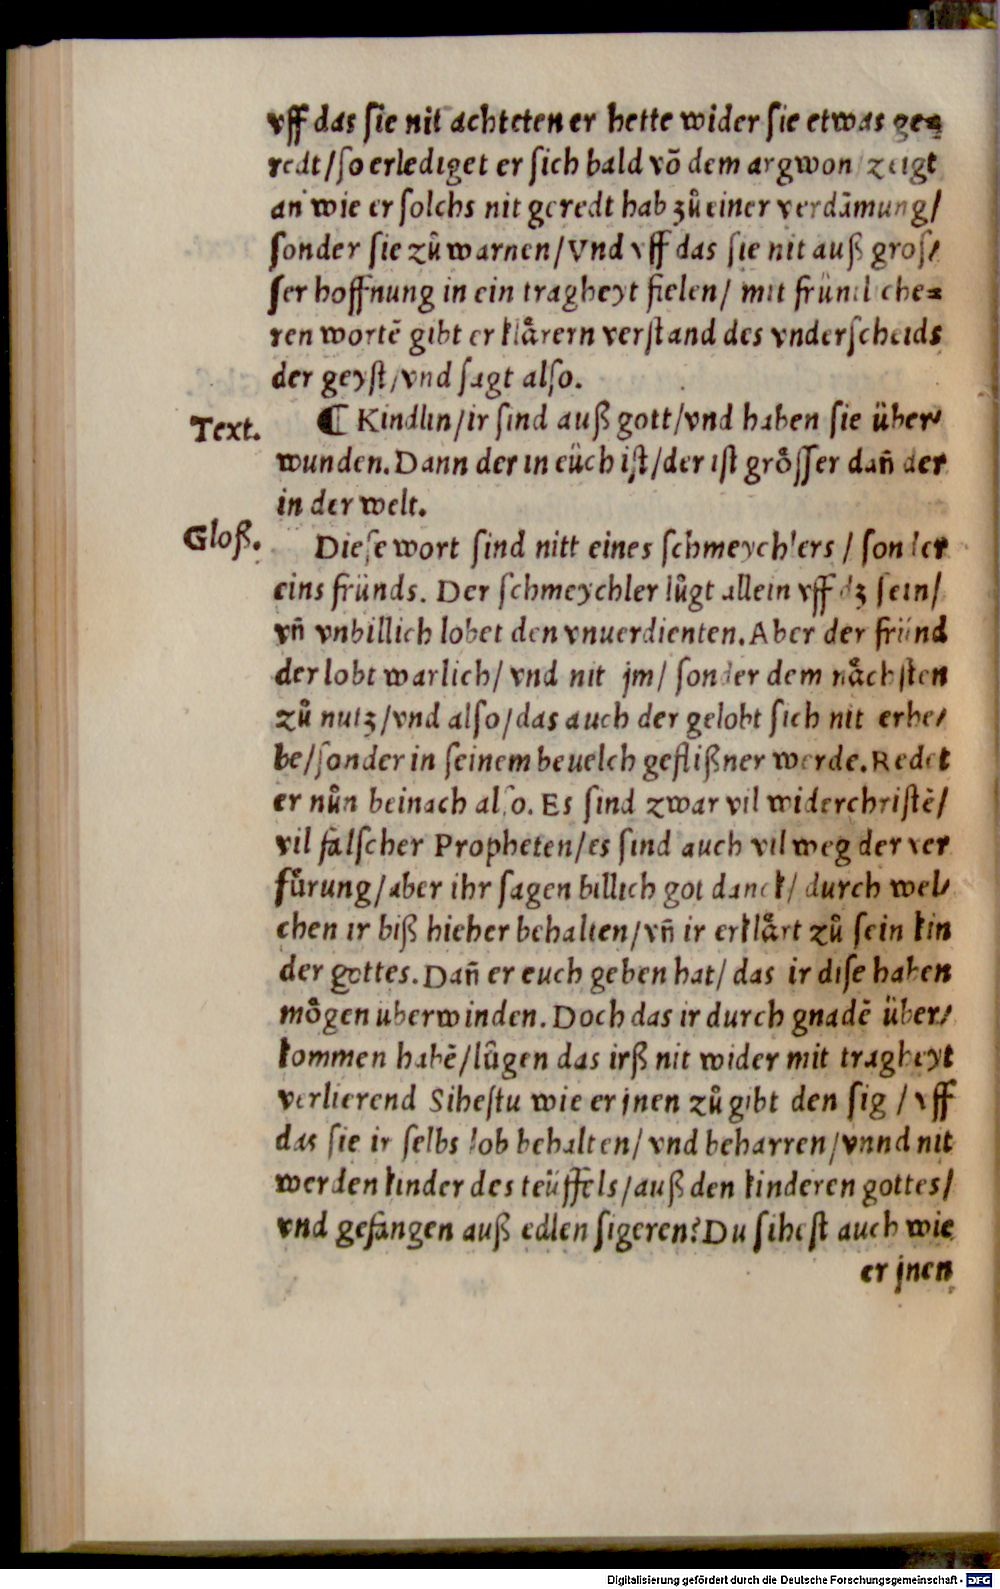 vff das ſie nit achteten er hette wider ſie etwas ge⸗
redt/ſo erlediget er ſich bald võ dem argwon zeigt
an wie er ſolchs nit geredt hab zů einer verdãmung/
ſonder ſie zů warnen/Vnd vff das ſie nit auß groſ/
ſer hoffnung in ein tragheyt fielen/ mit fründliche⸗
ren wortẽ gibt er klårern verſtand des vnderſcheids
der geyſt/vnd ſagt alſo.
Text.
¶ Kindlin/ir ſind auß gott/vnd haben ſie über/
wunden.Dann der in eüch iſt/der iſt grôſſer dañ der
in der welt.
Gloß.
Dieſe wort ſind nitt eines ſchmeychlers / ſonder
eins fründs. Der ſchmeychler lůgt allein vff dz ſein/
vñ vnbillich lobet den vnuerdienten.Aber der fründ
der lobt warlich/ vnd nit jm/ ſonder dem nåchſten
zů nutz/vnd alſo/das auch der gelobt ſich nit erhe/
be/ſonder in ſeinem beuelch gefliß̈ner werde.Redet
er nůn beinach alſo. Es ſind zwar vil widerchriſtẽ/
vil falſcher Propheten/es ſind auch vil weg der ver
fůrung/aber ihr ſagen billich got danck/ durch wel/
chen ir biß hieher behalten/vñ ir erklårt zů ſein kin
der gottes.Dañ er euch geben hat/ das ir diſe haben
môgen uberwinden.Doch das ir durch gnadẽ über/
kommen habẽ/lůgen das irß nit wider mit tragheyt
verlierend Siheſtu wie er jnen zů gibt den ſig / vff
das ſie ir ſelbs lob behalten/ vnd beharren/vnnd nit
werden kinder des teüffels/auß den kinderen gottes/
vnd gefangen auß edlen ſigeren?Du ſiheſt auch wie
er jnen
Digitalisierung gefördert durch die Deutsche Forschungsgemeinschaft - DFG